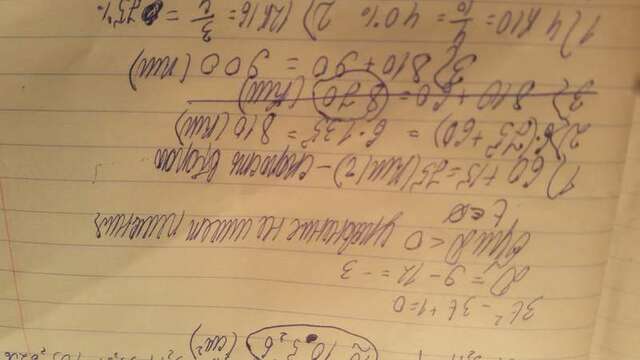 ≈ 10,5,6 (см²)
3t² - 3t + 1 = 0
D = 9 - 12 = -3
При D < 0 уравнение не имеет решения
t ∈ ∅
1) 60 + 15 = 75 (км/ч) - скорость второго
2) 6·(75 + 60) = 6·135 = 810 (км)
3) 810 + 60 = 870 (км)
3) 810 + 90 = 900 (км)
1) 4 к 10 = 4/10 = 40% 2) 12 к 16 = 3/4 = 75%